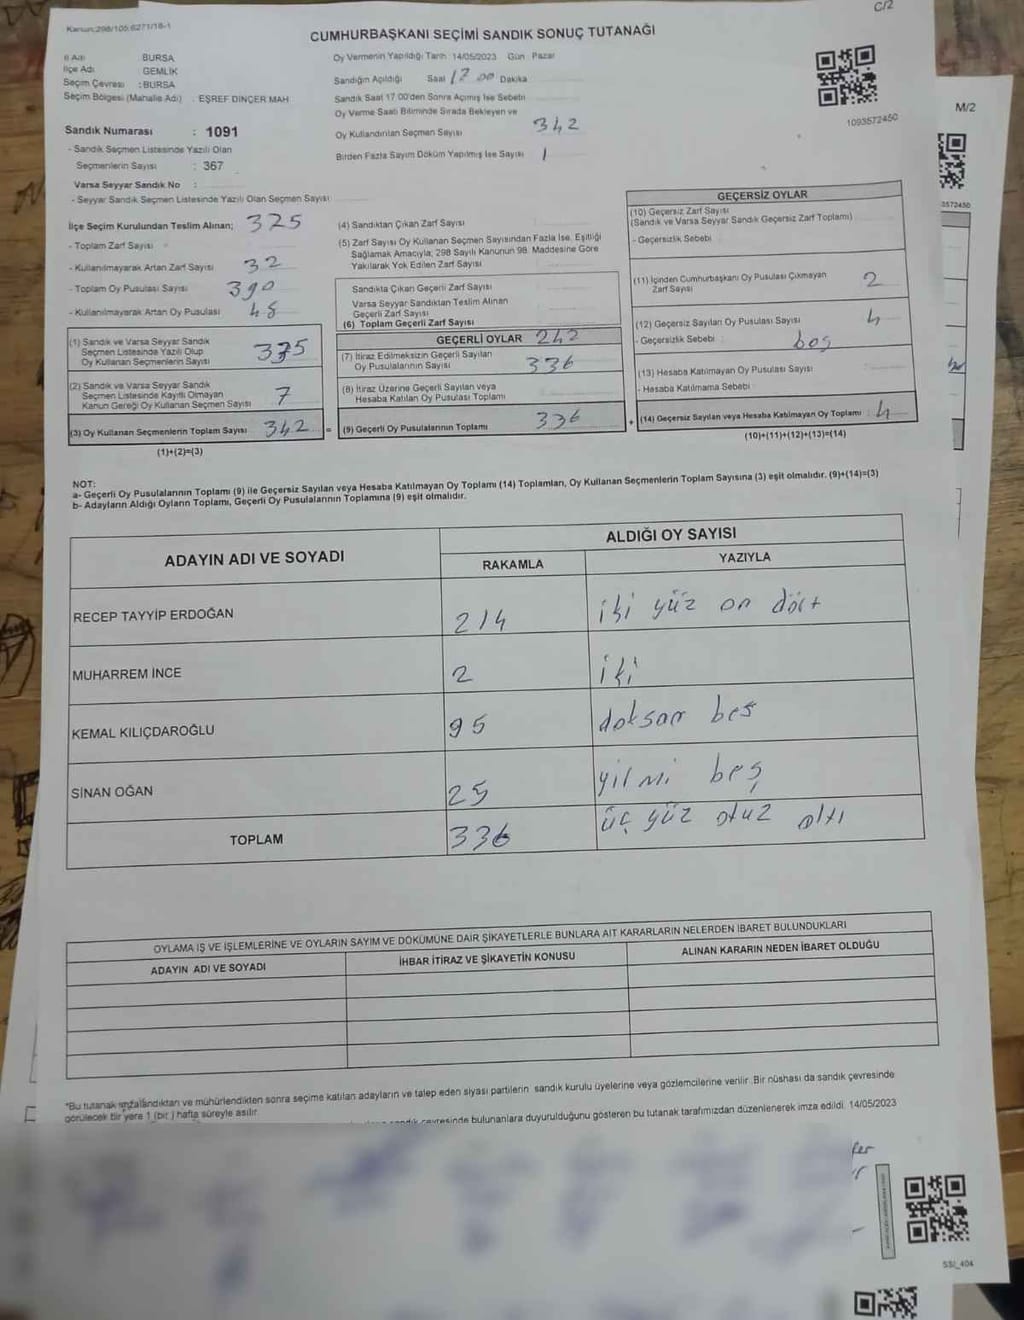 Kanun:298/105,6271/18-1
C/2
CUMHURBAŞKANI SEÇİMİ SANDIK SONUÇ TUTANAĞI
İl Adı BURSA
İlçe Adı GEMLİK
Seçim Çevresi : BURSA
Seçim Bölgesi (Mahalle Adı) . EŞREF DİNÇER MAH
Oy Vermenin Yapıldığı Tarih 14/05/2023 Gün Pazar
Sandığın Açıldığı Saat 17 00 Dakika
Sandık Saat 17.00'den Sonra Açılmış İse Sebebi
Oy Verme Saati Bitiminde Sırada Bekleyen ve
Oy Kullandırılan Seçmen Sayısı 342
Birden Fazla Sayım Döküm Yapılmış İse Sayısı 1
1093572450
M/2
3572450
Sandık Numarası : 1091
- Sandık Seçmen Listesinde Yazılı Olan
Seçmenlerin Sayısı : 367
Varsa Seyyar Sandık No :
- Seyyar Sandık Seçmen Listesinde Yazılı Olan Seçmen Sayısı
İlçe Seçim Kurulundan Teslim Alınan; 375
- Toplam Zarf Sayısı
- Kullanılmayarak Artan Zarf Sayısı 32
- Toplam Oy Pusulası Sayısı 390
- Kullanılmayarak Artan Oy Pusulası 48
(1) Sandık ve Varsa Seyyar Sandık
Seçmen Listesinde Yazılı Olup
Oy Kullanan Seçmenlerin Sayısı 335
(2) Sandık ve Varsa Seyyar Sandık
Seçmen Listesinde Kayıtlı Olmayan
Kanun Gereği Oy Kullanan Seçmen Sayısı 7
(3) Oy Kullanan Seçmenlerin Toplam Sayısı 342 =
(1)+(2)=(3)
(4) Sandıktan Çıkan Zarf Sayısı
(5) Zarf Sayısı Oy Kullanan Seçmen Sayısından Fazla İse, Eşitliği
Sağlamak Amacıyla; 298 Sayılı Kanunun 98. Maddesine Göre
Yakılarak Yok Edilen Zarf Sayısı
Sandıkta Çıkan Geçerli Zarf Sayısı
Varsa Seyyar Sandıktan Teslim Alınan
Geçerli Zarf Sayısı
(6) Toplam Geçerli Zarf Sayısı
GEÇERLİ OYLAR 242
(7) İtiraz Edilmeksizin Geçerli Sayılan
Oy Pusulasının Sayısı 336
(8) İtiraz Üzerine Geçerli Sayılan veya
Hesaba Katılan Oy Pusulası Toplamı
(9) Geçerli Oy Pusulalarının Toplamı 336 +
GEÇERSİZ OYLAR
(10) Geçersiz Zarf Sayısı
(Sandık ve Varsa Seyyar Sandık Geçersiz Zarf Toplamı)
- Geçersizlik Sebebi
(11) İçinden Cumhurbaşkanı Oy Pusulası Çıkmayan
Zarf Sayısı 2
(12) Geçersiz Sayılan Oy Pusulası Sayısı 4
- Geçersizlik Sebebi boş
(13) Hesaba Katılmayan Oy Pusulası Sayısı
- Hesaba Katılmama Sebebi
(14) Geçersiz Sayılan veya Hesaba Katılmayan Oy Toplamı : 4
(10)+(11)+(12)+(13)=(14)
NOT:
a- Geçerli Oy Pusulalarının Toplamı (9) ile Geçersiz Sayılan veya Hesaba Katılmayan Oy Toplamı (14) Toplamları, Oy Kullanan Seçmenlerin Toplam Sayısına (3) eşit olmalıdır. (9)+(14)=(3)
b- Adayların Aldığı Oyların Toplamı, Geçerli Oy Pusulalarının Toplamına (9) eşit olmalıdır.
ADAYIN ADI VE SOYADI
ALDIĞI OY SAYISI
RAKAMLA YAZIYLA
RECEP TAYYİP ERDOĞAN 214 iki yüz on dört
MUHARREM İNCE 2 iki
KEMAL KILIÇDAROĞLU 95 doksan beş
SİNAN OĞAN 25 yirmi beş
TOPLAM 336 üç yüz otuz altı
OYLAMA İŞ VE İŞLEMLERİNE VE OYLARIN SAYIM VE DÖKÜMÜNE DAİR ŞİKAYETLERLE BUNLARA AİT KARARLARIN NELERDEN İBARET BULUNDUKLARI
ADAYIN ADI VE SOYADI İHBAR İTİRAZ VE ŞİKAYETİN KONUSU ALINAN KARARIN NEDEN İBARET OLDUĞU
*Bu tutanak imzalandıktan ve mühürlendikten sonra seçime katılan adayların ve talep eden siyasi partilerin sandık kurulu üyelerine veya gözlemcilerine verilir. Bir nüshası da sandık çevresinde
görülecek bir yere 1 (bir ) hafta süreyle asılır.
sandık çevresinde bulunanlara duyurulduğunu gösteren bu tutanak tarafımızdan düzenlenerek imza edildi. 14/05/2023
SSI_404